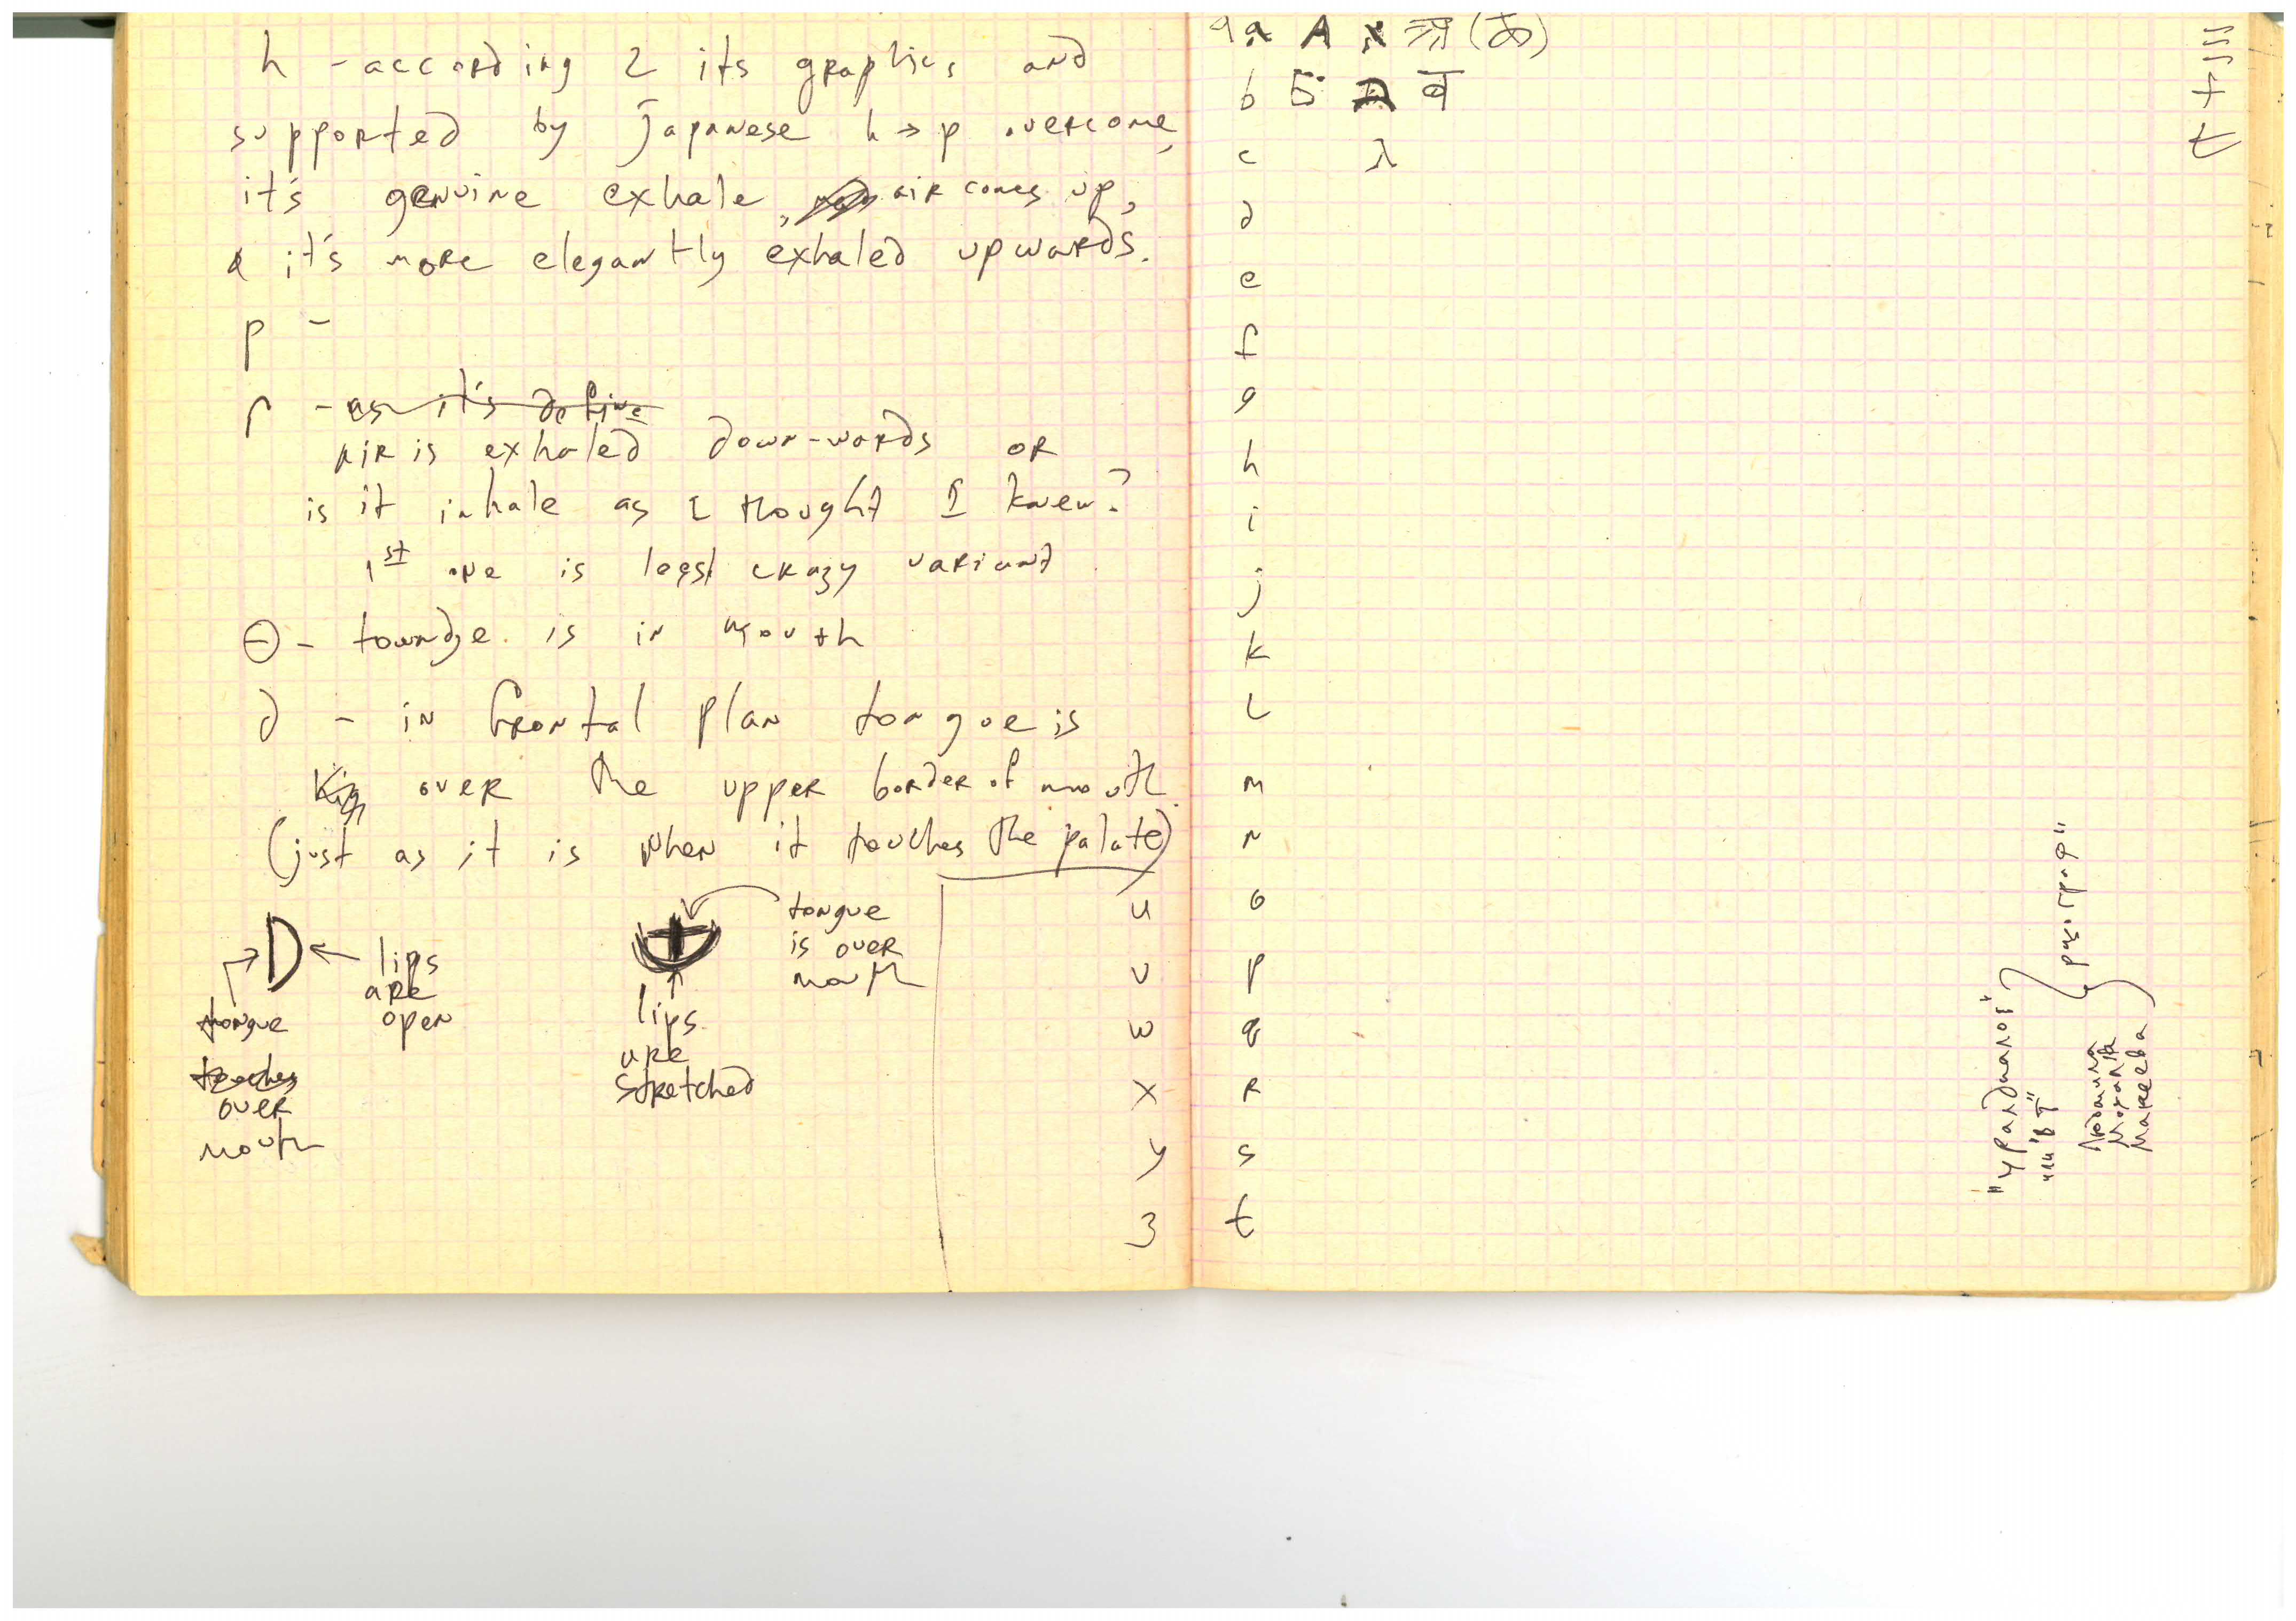 h - according 2 its graphics and
supported by Japanese h → p overcome,
it's genuine exhale, air comes up,
& it's more elegantly exhaled upwards.
p -
ր - as it's define
air is exhaled down-words or
is it inhale as I thought I knew?
1st one is legst crazy variant
Θ - toundge is in mouth
∂ - in frontal plan tongue is
over the upper border of mouth
(just as it is when it touches the palate)
D
lips
are
open
tongue
touches
over
mouth
tongue
is over
mouth
lips
are
stretched
u
v
w
x
y
3
a A א अ (あ)
b Б ב ब
c λ
∂
e
f
g
h
i
j
k
L
m
n
o
p
q
R
s
t
"разграф"
Людмила
Макеева